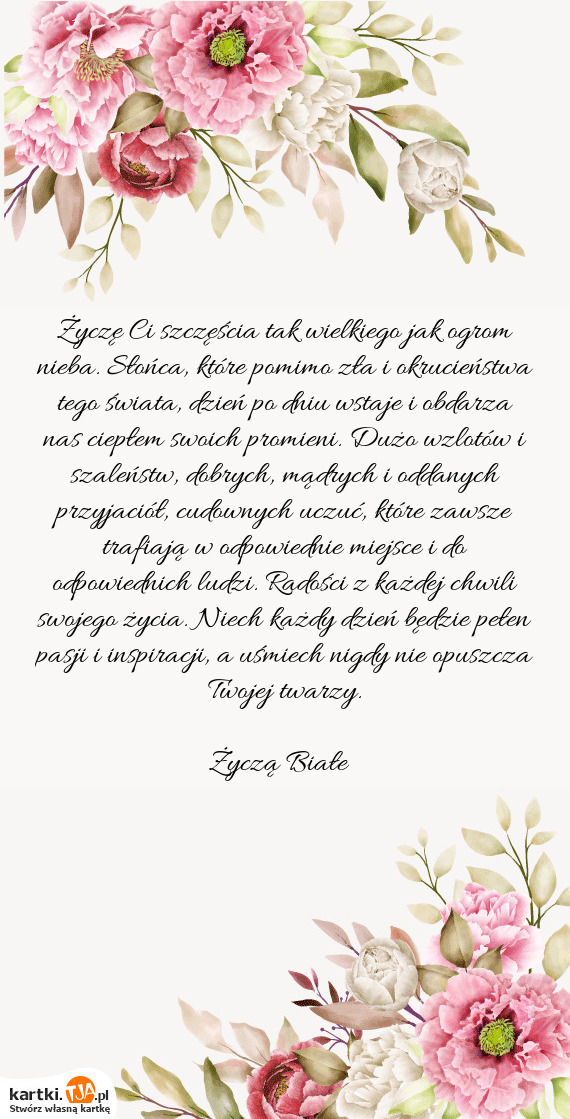 Życzę Ci szczęścia tak wielkiego jak ogrom
nieba. Słońca, które pomimo zła i okrucieństwa
tego świata, dzień po dniu wstaje i obdarza
nas ciepłem swoich promieni. Dużo wzlotów i
szaleństw, dobrych, mądrych i oddanych
przyjaciół, cudownych uczuć, które zawsze
trafiają w odpowiednie miejsce i do
odpowiednich ludzi. Radości z każdej chwili
swojego życia. Niech każdy dzień będzie pełen
pasji i inspiracji, a uśmiech nigdy nie opuszcza
Twojej twarzy.
Życzą Białe
kartki.TJA.pl
Stwórz własną kartkę